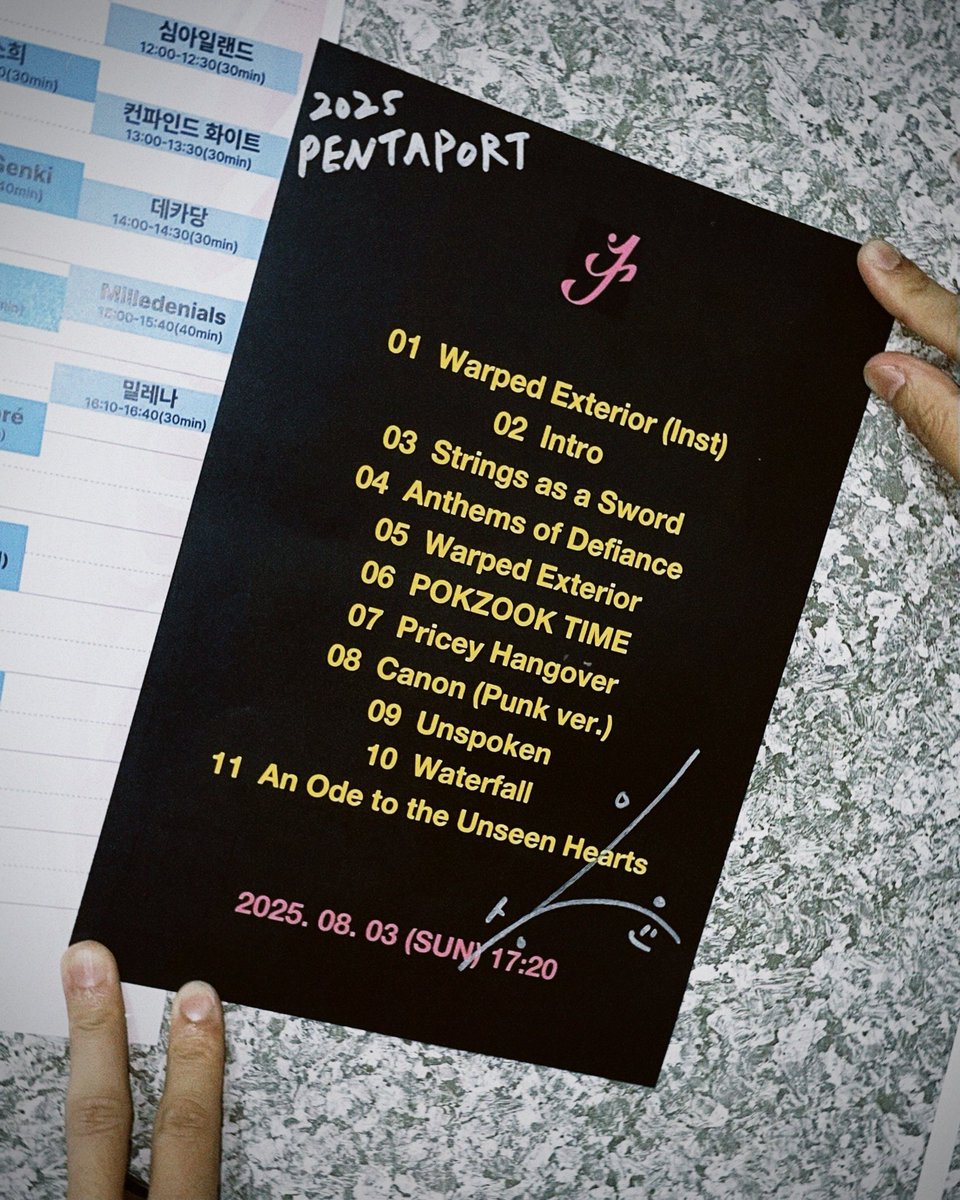 심아일랜드
12:00-12:30(30min)
컨파인드 화이트
13:00-13:30(30min)
데카당
14:00-14:30(30min)
Milledenials
15:00-15:40(40min)
밀레나
16:10-16:40(30min)
2025
PENTAPORT
01 Warped Exterior (Inst)
02 Intro
03 Strings as a Sword
04 Anthems of Defiance
05 Warped Exterior
06 POKZOOK TIME
07 Pricey Hangover
08 Canon (Punk ver.)
09 Unspoken
10 Waterfall
11 An Ode to the Unseen Hearts
2025. 08. 03 (SUN) 17:20